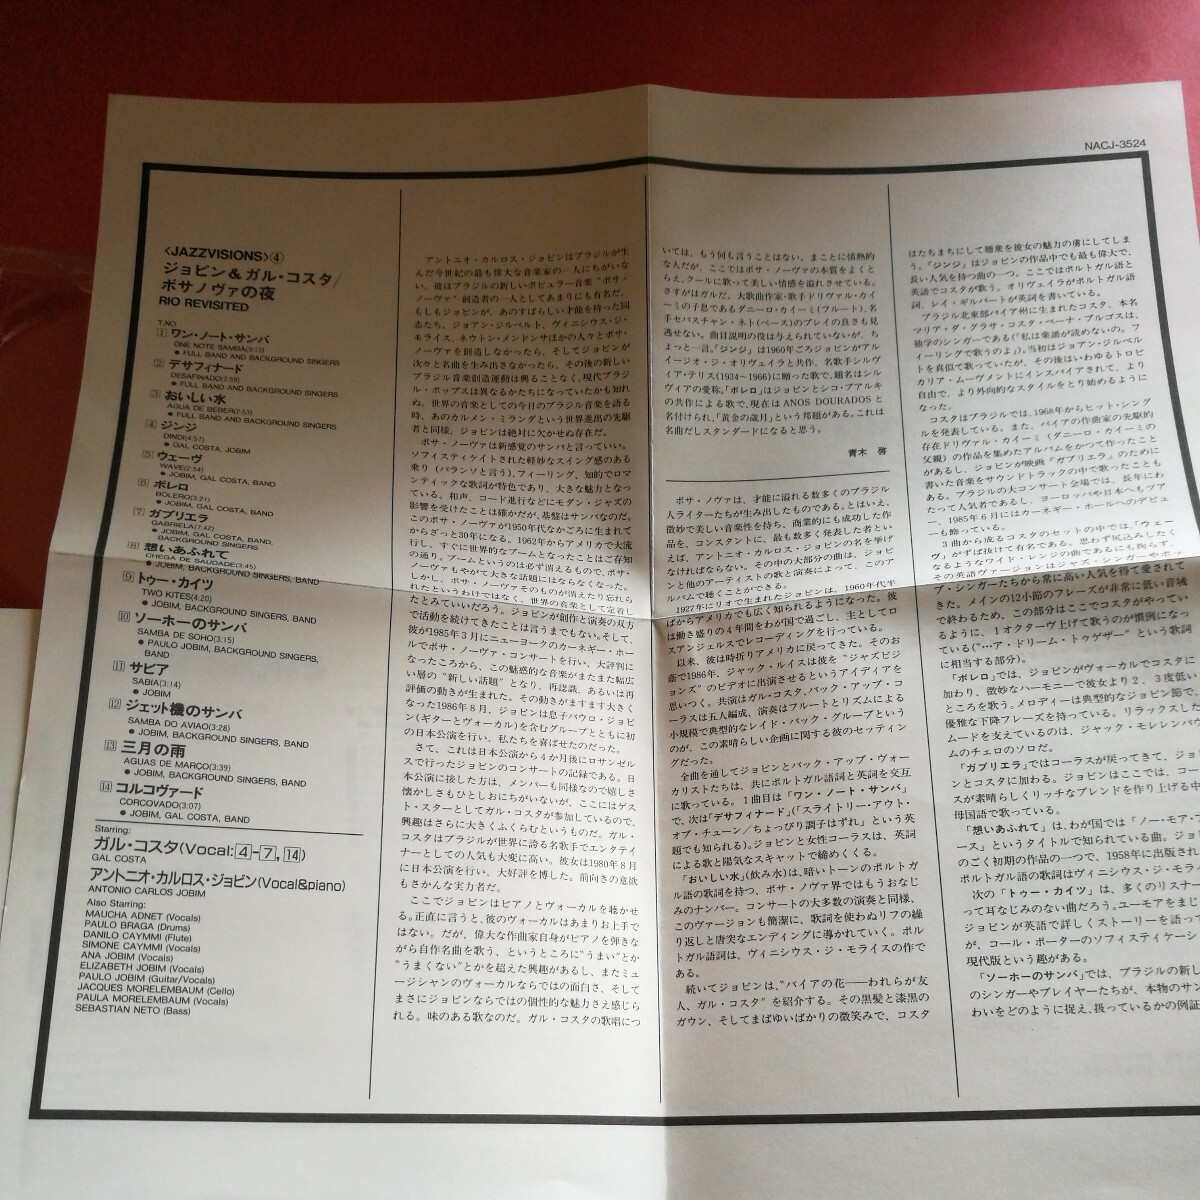 NACJ-3524
〈JAZZVISIONS〉④
ジョビン＆ガル・コスタ/
ボサノヴァの夜
RIO REVISITED
T.NO
1 ワン・ノート・サンバ
ONE NOTE SAMBA(3:13)
● FULL BAND AND BACKGROUND SINGERS
2 デサフィナード
DESAFINADO(2:59)
● FULL BAND AND BACKGROUND SINGERS
3 おいしい水
AGUA DE BEBER(2:53)
● FULL BAND AND BACKGROUND SINGERS
4 ジンジ
DINDI(4:57)
● GAL COSTA, JOBIM
5 ウェーヴ
WAVE(2:54)
● JOBIM, GAL COSTA, BAND
6 ボレロ
BOLERO(3:21)
● JOBIM, GAL COSTA, BAND
7 ガブリエラ
GABRIELA(7:42)
● JOBIM, GAL COSTA, BAND,
BACKGROUND SINGERS
8 想いあふれて
CHEGA DE SAUDADE(3:45)
● JOBIM, BACKGROUND SINGERS, BAND
9 トゥー・カイツ
TWO KITES(4:20)
● JOBIM, BACKGROUND SINGERS, BAND
10 ソーホーのサンバ
SAMBA DE SOHO(3:15)
● PAULO JOBIM, BACKGROUND SINGERS,
BAND
11 サビア
SABIA(3:14)
● JOBIM
12 ジェット機のサンバ
SAMBA DO AVIAO(3:28)
● JOBIM, BACKGROUND SINGERS, BAND
13 三月の雨
AGUAS DE MARÇO(3:39)
● JOBIM, BACKGROUND SINGERS, BAND
14 コルコヴァード
CORCOVADO(3:07)
● JOBIM, GAL COSTA, BAND
Starring:
ガル・コスタ(Vocal:4-7,14)
GAL COSTA
アントニオ・カルロス・ジョビン(Vocal&piano)
ANTONIO CARLOS JOBIM
Also Starring:
MAUCHA ADNET (Vocals)
PAULO BRAGA (Drums)
DANILO CAYMMI (Flute)
SIMONE CAYMMI (Vocals)
ANA JOBIM (Vocals)
ELIZABETH JOBIM (Vocals)
PAULO JOBIM (Guitar/Vocals)
JACQUES MORELEMBAUM (Cello)
PAULA MORELEMBAUM (Vocals)
SEBASTIAN NETO (Bass)
アントニオ・カルロス・ジョビンはブラジルが生
んだ今世紀の最も偉大な音楽家の一人にちがいな
い。彼はブラジルの新しいポピュラー音楽“ボサ・
ノーヴァ”創造者の一人としてあまりにも有名だ。
もしもジョビンが、あのすばらしい才能を持った同
志たち、ジョアン・ジルベルト、ヴィニシウス・ジ・
モライス、ネウトン・メンドンサほかの人々とボサ・
ノーヴァを創造しなかったら、そしてジョビンが
次々と名曲を生み出さなかったら、その後の新しい
ブラジル音楽創造運動は興ることなく、現代ブラジ
ル・ポップスは異なるかたちになっていたかも知れ
ぬ。世界の音楽としての今日のブラジル音楽を語る
時、あのカルメン・ミランダという世界進出の先駆
者と同様、ジョビンは絶対に欠かせぬ存在だ。
ボサ・ノーヴァは新感覚のサンバと言っていい。
ソフィスティケイトされた軽妙なスイング感のある
乗り（バランソと言う）、フィーリング、知的でロマ
ンティックな歌詞が特色であり、大きな魅力となっ
ている。和声、コード進行などにモダン・ジャズの
影響を受けたことは確かだが、基盤はサンバなのだ。
このボサ・ノーヴァが1950年代なかごろに生まれて
からざっと30年になる。1962年からアメリカで大流
行し、すぐに世界的なブームとなったことはご存知
の通り。ブームというのは必ず消えるもので、ボサ・
ノーヴァもやがて大きな話題にはならなくなった。
しかし、ボサ・ノーヴァそのものが消えたり忘れら
れたというわけではなく、世界の音楽として定着し
たとみていいだろう。ジョビンが創作と演奏の双方
で活動を続けてきたことは言うまでもない。そして、
彼が1985年3月にニューヨークのカーネギー・ホー
ルでボサ・ノーヴァ・コンサートを行い、大評判に
なったころから、この魅惑的な音楽がまたまた幅広
い層の“新しい話題”となり、再認識、あるいは再
評価の動きが生まれた。その動きがますます大きく
なった1986年8月、ジョビンは息子パウロ・ジョビ
ン(ギターとヴォーカル)を含むグループとともに初
の日本公演を行い、私たちを喜ばせたのだった。
さて、これは日本公演から4か月後にロサンゼル
スで行ったジョビンのコンサートの記録である。日
本公演に接した方は、メンバーも同様なので嬉しさ
懐かしさもひとしおにちがいないが、ここにはゲス
ト・スターとしてガル・コスタが参加しているので、
興趣はさらに大きくふくらむというものだ。ガル・
コスタはブラジルが世界に誇る名歌手でエンタテイ
ナーとしての人気も大変に高い。彼女は1980年8月
に日本公演を行い、大好評を博した。前向きの意欲
もさかんな実力者だ。
ここでジョビンはピアノとヴォーカルを聴かせ
る。正直に言うと、彼のヴォーカルはあまりお上手で
はない。だが、偉大な作曲家自身がピアノを弾きな
がら自作名曲を歌う、というところに“うまい”とか
“うまくない”とかを超えた興趣があるし、またミュ
ージシャンのヴォーカルならではの面白さ、そして
まさにジョビンならではの個性的な魅力さえ感じら
れる。味のある歌なのだ。ガル・コスタの歌唱につ
いては、もう何も言うことはない。まことに情熱的
な人だが、ここではボサ・ノーヴァの本質をよくと
らえ、クールに歌って美しい情感を溢れさせている。
さすがはガルだ。大歌曲作家・歌手ドリヴァル・カイ
ーミの子息であるダニーロ・カイーミ(フルート)、名
手セバスチャン・ネト(ベース)のプレイの良さも見
逃せない。曲目説明の役は与えられていないが、ち
ょっと一言。「ジンジ」は1960年ごろジョビンがアル
イージオ・ジ・オリヴェイラと共作、名歌手シルヴ
ィア・テリス(1934〜1966)に贈った歌で、題名はシル
ヴィアの愛称。「ボレロ」はジョビンとシコ・ブアルキ
の共作による歌で、現在は ANOS DOURADOS と
名付けられ、「黄金の歳月」という邦題がある。これは
名曲だしスタンダードになると思う。
青木 啓
ボサ・ノヴァは、才能に溢れる数多くのブラジル
人ライターたちが生み出したものである。とはいえ、
微妙で美しい音楽性を持ち、商業的にも成功した作
品を、コンスタントに、最も数多く発表した者とい
えば、アントニオ・カルロス・ジョビンの名を挙げ
なければならない。その中の大部分の曲は、ジョビ
ンと他のアーティストの歌と演奏によって、このア
ルバムで聴くことができる。
1927年にリオで生まれたジョビンは、1960年代半
ばからアメリカでも広く知られるようになった。彼
は働き盛りの4年間をわが国で過ごし、主としてロ
スアンジェルスでレコーディングを行っている。
以来、彼は時折りアメリカに戻ってきた。そのお
蔭で1986年、ジャック・ルイスは彼を“ジャズビジ
ョンズ”のビデオに出演させるというアイディアを
思いつく。共演はガル・コスタ、バック・アップ・コ
ーラスは五人編成、演奏はフルートとリズムによる
小規模で典型的なレイド・バック・グループという
のが、この素晴らしい企画に関する彼のセッティン
グだった。
全曲を通してジョビンとバック・アップ・ヴォー
カリストたちは、共にポルトガル語詞と英詞を交互
に歌っている。1曲目は「ワン・ノート・サンバ」
で、次は「デサフィナード」(「スライトリー・アウト・
オブ・チューン／ちょっぴり調子はずれ」という英
題でも知られる)。ジョビンと女性コーラスは、英詞
による歌と陽気なスキャットで締めくくる。
「おいしい水」(飲み水)は、暗いトーンのポルトガ
ル語の歌詞を持つ、ボサ・ノヴァ界ではもうおなじ
みのナンバー。コンサートの大多数の演奏と同様、
このヴァージョンも簡潔に、歌詞を使わぬリフの繰
り返しと唐突なエンディングに導かれていく。ポル
トガル語詞は、ヴィニシウス・ジ・モライスの作で
ある。
続いてジョビンは、“バイアの花――われらが友
人、ガル・コスタ”を紹介する。その黒髪と漆黒の
ガウン、そしてまばゆいばかりの微笑みで、コスタ
はたちまちにして聴衆を彼女の魅力の虜にしてしま
う。「ジンジ」はジョビンの作品中でも最も偉大で、
長い人気を持つ曲の一つ。ここではポルトガル語と
英語でコスタが歌う。オリヴェイラがポルトガル語
詞、レイ・ギルバートが英詞を書いている。
ブラジル北東部バイア州に生まれたコスタ、本名
マリア・ダ・グラサ・コスタ・ペーナ・ブルゴスは、
独学のシンガーである(「私は楽譜が読めないの。フ
ィーリングで歌うのよ」)。当初はジョアン・ジルベル
トを真似て歌っていたが、その後はいわゆるトロピ
カリア・ムーヴメントにインスパイアされて、より
自由で、より外向的なスタイルをとり始めるように
なった。
コスタはブラジルでは、1968年からヒット・シング
ルを発表している。また、バイアの作曲家の先駆的
存在ドリヴァル・カイーミ(ダニーロ・カイーミの
父親)の作品を集めたアルバムをかつて作ったこと
があるし、ジョビンが映画「ガブリエラ」のために
書いた音楽をサウンドトラックの中で歌ったことも
ある。ブラジルの大コンサート会場では、長年にわ
たって人気者であるし、ヨーロッパや日本へもツア
ー、1985年6月にはカーネギー・ホールへのデビュ
ーも飾っている。
3曲から成るコスタのセットの中では、「ウェー
ヴ」がずば抜けて有名である。思わず尻込みしたく
なるようなワイド・レンジの曲であるにも拘らず、
その英語ヴァージョンはジャズ・シンガーやポッ
プ・シンガーたちから常に高い人気を得て愛されて
きた。メインの12小節のフレーズが非常に低い音域
で終わるため、この部分はここでコスタがやってい
るように、1オクターヴ上げて歌うのが慣例になっ
ている(“…ア・ドリーム・トゥゲザー”という歌詞
に相当する部分)。
「ボレロ」では、ジョビンがヴォーカルでコスタに
加わり、微妙なハーモニーで彼女より2、3度低い
ところを歌う。メロディーは典型的なジョビン節で、
優雅な下降フレーズを持っている。リラックスした
ムードを支えているのは、ジャック・モレレンバウ
ムのチェロのソロだ。
「ガブリエラ」ではコーラスが戻ってきて、ジョビ
ンとコスタに加わる。ジョビンはここでは、コー
スが素晴らしくリッチなブレンドを作り上げる中
母国語で歌っている。
「想いあふれて」は、わが国では「ノー・モア・ブ
ース」というタイトルで知られている曲。ジョ
のごく初期の作品の一つで、1958年に出版され
ポルトガル語の歌詞はヴィニシウス・ジ・モライ
次の「トゥー・カイツ」は、多くのリスナー
って耳なじみのない曲だろう。ユーモアをまじ
ジョビンが英語で詳しくストーリーを語っ
が、コール・ポーターのソフィスティケーシ
現代版という趣がある。
「ソーホーのサンバ」では、ブラジルの新し
のシンガーやプレイヤーたちが、本物のサン
わいをどのように捉え、扱っているかの例証